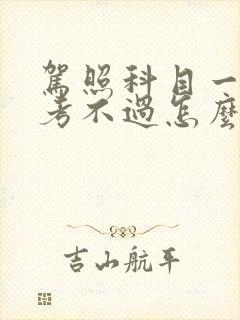 駕照科目一
考不過怎麼
吉山航平